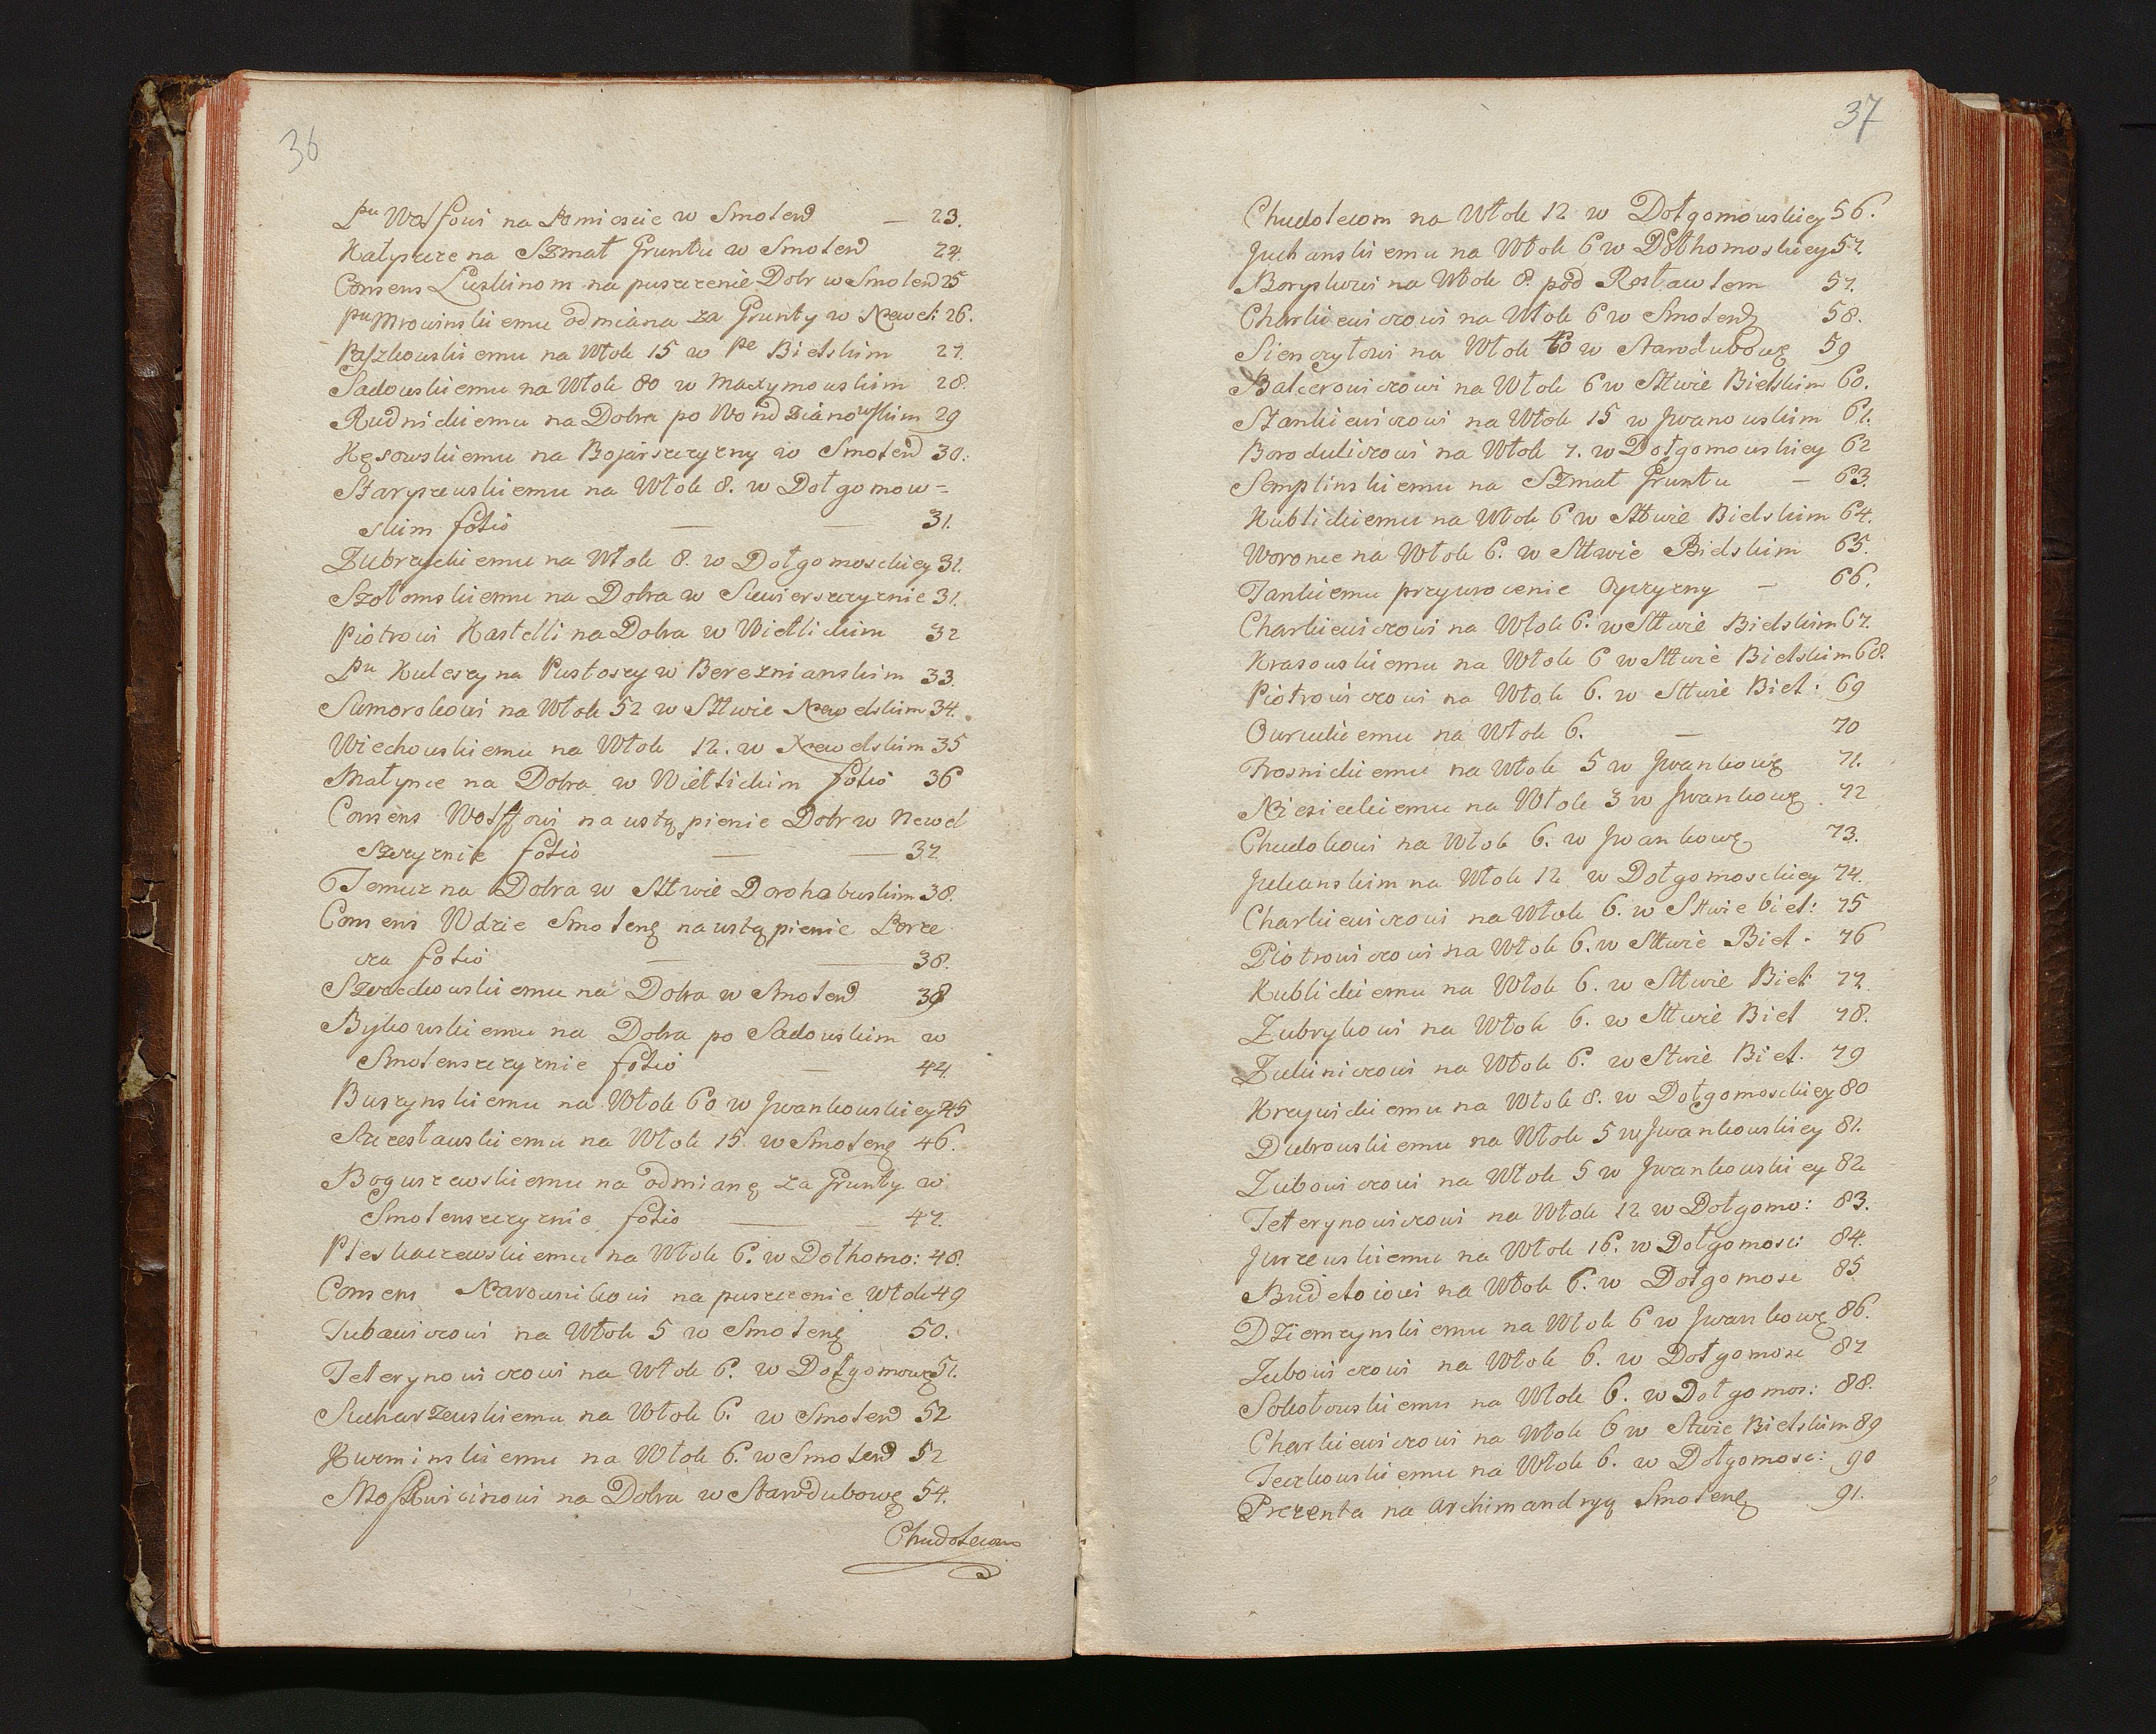 36
Pu Wolfowi na Pomiescie w Smolen̄ — 23.
Kałyszce na Szmat Gruntu w Smolen̄ 24.
Consens Luskinom na puszczenie Dobr w Smolen̄ 25
Pu Mrowinskiemu odmiana za Grunty w Newel: 26.
Paszkowskiemu na Włok 15 w Pe Bielskim 27.
Sadowskiemu na Włok 80 w Maxymowskim 28.
Rudnickiemu na Dobra po Wondzianowskim 29
Kęsowskiemu na Bojarszczyzny w Smolen̄ 30.
Staryszewskiemu na Włok 8. w Dołgomow=
skim folio — — 31.
Zubrzyckiemu na Włok 8. w Dołgomosckiey 31.
Szołomskiemu na Dobra w Siewierszczyznie 31.
Piotrowi Kastelli na Dobra w Wieliżkim 32
Pu Kuleszy na Pustoszy w Bereznianskim 33.
Sumorokowi na Włok 52 w Sttwie Newelskim 34.
Wiechowskiemu na Włok 12. w Newelskim 35
Małynce na Dobra w Wieliżkim folio 36
Consens Wolffowi na ustąpienie Dobr w Newel
szczyznie folio — — 37.
Temuz na Dobra w Sttwie Dorohobuskim 38.
Consens Wdzie Smoleńs na ustąpienie Porze
cza folio — — 38.
Szwedkowskiemu na Dobra w Smolen̄ 39
Bykowskiemu na Dobra po Sadowskim w
Smolenszczyznie folio — 44.
Buszynskiemu na Włok 60 w Jwankowskiey 45
Szczesławskiemu na Włok 15 w Smoleńs 46.
Boguszewskiemu na odmianę za Grunty w
Smolenszczyznie folio — — 47.
Pleskaczewskiemu na Włok 6. w Dołhomo: 48.
Consens Narownikowi na puszczenie Włok 49
Jubawiczowi na Włok 5 w Smoleńs 50.
Teterynowiczowi na Włok 6. w Dołgomows 51.
Sucharzewskiemu na Włok 6. w Smolen̄ 52
Kurminskiemu na Włok 6. w Smolen̄ 52
Moskwicinowi na Dobra w Starodubows 54.
Chudolcom
37
Chudolcom na Włok 12 w Dołgomowskiey 56.
Juchanskiemu na Włok 6 w Dołhomoskiey 57.
Boryskowi na Włok 8. pod Rosławlem 57.
Charkiewiczowi na Włok 6 w Smolens 58.
Sienczyłowi na Włok 40 w Starodubows 59
Balcerowiczowi na Włok 6 w Sttwie Bielskim 60.
Stankiewiczowi na Włok 15 w Jwanowskim 61.
Boroduliczowi na Włok 7. w Dołgomowskiey 62
Semplinskiemu na Szmat Gruntu — 63.
Kublickiemu na Włok 6 w Sttwie Bielskim 64.
Woronce na Włok 6. w Sttwie Bielskim 65.
Jankiemu przywrocenie Oyczyzny — 66.
Charkiewiczowi na Włok 6. w Sttwie Bielskim 67.
Krasowskiemu na Włok 6 w Sttwie Bielskim 68.
Piotrowiczowi na Włok 6. w Sttwie Biel: 69
Owruckiemu na Włok 6. — 70
Trosnickiemu na Włok 5 w Jwankows 71.
Niesieckiemu na Włok 3 w Jwankows 72
Chudokowi na Włok 6. w Jwankows 73.
Juchanskim na Włok 12 w Dołgomosckiey 74.
Charkiewiczowi na Włok 6. w Sttwie biel: 75
Piotrowiczowi na Włok 6. w Sttwie Biel: 76
Kublickiemu na Włok 6. w Sttwie Biel: 77.
Zubrykowi na Włok 6. w Sttwie Biel 78.
Zukiniczowi na Włok 6. w Stwie Biel. 79
Krzywickiemu na Włok 8. w Dołgomosckiey 80
Dubrowskiemu na Włok 5 w Jwankowskiey 81.
Zubowiczowi na Włok 5 w Jwankowskiey 82
Teterynowiczowi na Włok 12 w Dołgomo: 83.
Jurzewskiemu na Włok 16. w Dołgomosc: 84.
Budełowi na Włok 6. w Dołgomosc 85
Dziemzynskiemu na Włok 6 w Jwankows 86.
Zubowiczowi na Włok 6. w Dołgomosc 87
Sokołowskiemu na Włok 6. w Dołgomos: 88.
Charkiewiczowi na Włok 6 w Stwie Bielskim 89
Jeczkowskiemu na Włok 6. w Dołgomosc: 90
Prezenta na Archimandryą Smolens 91.